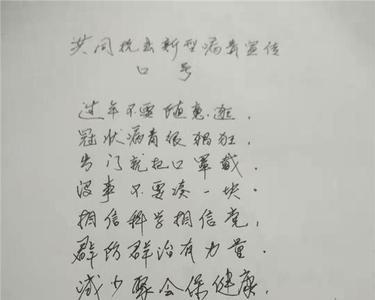 共同抗击新型病毒宣传
口号
过年不要随意逛,
冠状病毒很猖狂,
出门就把口罩戴,
没事不要凑一块.
相信科学相信党,
群防群治有力量.
减少聚会保健康,